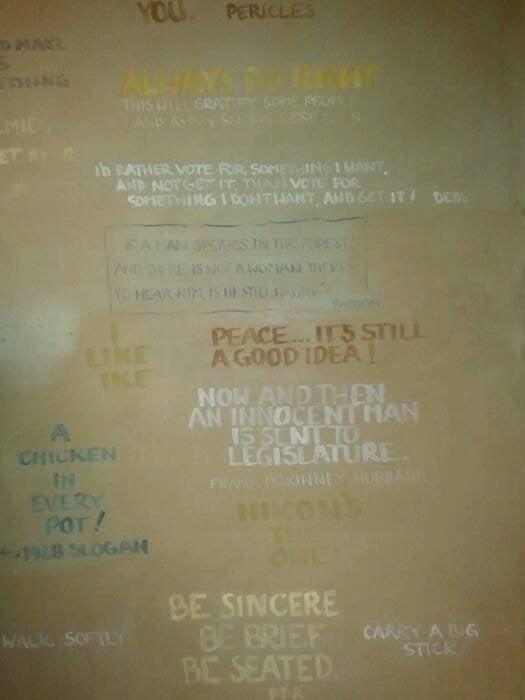 YOU. PERICLES
MAKE
ALWAYS DO RIGHT
THIS WILL GRATIFY SOME PEOPLE
AND ASTONISH THE REST
I'D RATHER VOTE FOR SOMETHING I WANT,
AND NOT GET IT, THAN VOTE FOR
SOMETHING I DON'T WANT, AND GET IT! DEBS
IF A MAN SPEAKS IN THE FOREST
AND THERE IS NOT A WOMAN THERE
TO HEAR HIM, IS HE STILL WRONG
I
LIKE
IKE
PEACE... IT'S STILL
A GOOD IDEA!
NOW AND THEN
AN INNOCENT MAN
IS SENT TO
LEGISLATURE.
FRANK MCKINNEY HUBBARD
A
CHICKEN
IN
EVERY
POT!
1928 SLOGAN
NIXON'S
THE
ONE
BE SINCERE
BE BRIEF
BE SEATED.
FDR
WALK SOFTLY
CARRY A BIG
STICK